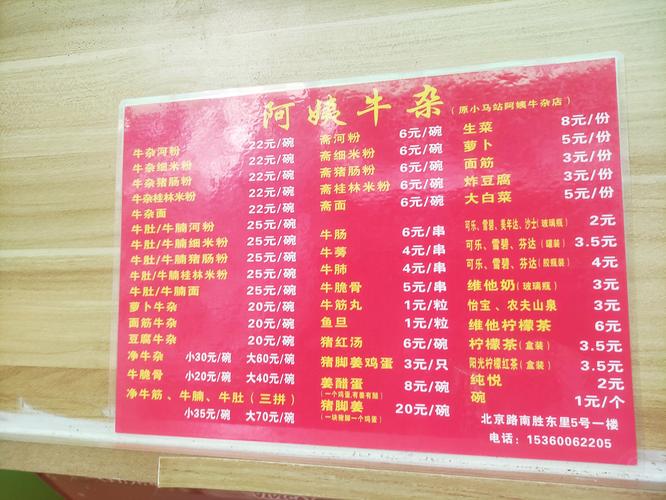 阿姨牛杂（原小马站阿姨牛杂店）
牛杂河粉 22元/碗
牛杂细米粉 22元/碗
牛杂猪肠粉 22元/碗
牛杂桂林米粉 22元/碗
牛杂面 22元/碗
牛肚/牛腩河粉 25元/碗
牛肚/牛腩细米粉 25元/碗
牛肚/牛腩猪肠粉 25元/碗
牛肚/牛腩桂林米粉 25元/碗
牛肚/牛腩面 25元/碗
萝卜牛杂 20元/碗
面筋牛杂 20元/碗
豆腐牛杂 20元/碗
净牛杂 小30元/碗 大60元/碗
牛脆骨 小20元/碗 大40元/碗
净牛筋、牛腩、牛肚（三拼）
小35元/碗 大70元/碗
斋河粉 6元/碗
斋细米粉 6元/碗
斋猪肠粉 6元/碗
斋桂林米粉 6元/碗
斋面 6元/碗
牛肠 6元/串
牛蒡 4元/串
牛肺 4元/串
牛脆骨 5元/串
牛筋丸 1元/粒
鱼旦 1元/粒
猪红汤 6元/碗
猪脚姜鸡蛋 3元/只
姜醋蛋 8元/碗
（一个鸡蛋,有姜有醋）
猪脚姜 20元/碗
（一块猪脚一个鸡蛋）
生菜 8元/份
萝卜 5元/份
面筋 3元/份
炸豆腐 3元/份
大白菜 5元/份
可乐、雪碧、美年达、沙士(玻璃瓶) 2元
可乐、雪碧、芬达(罐装) 3.5元
可乐、雪碧、芬达(胶瓶装) 4元
维他奶(玻璃瓶) 3元
怡宝、农夫山泉 3元
维他柠檬茶 6元
柠檬茶(盒装) 3.5元
阳光柠檬红茶(盒装) 3.5元
纯悦 2元
碗 1元/个
北京路南胜东里5号一楼
电话：15360062205